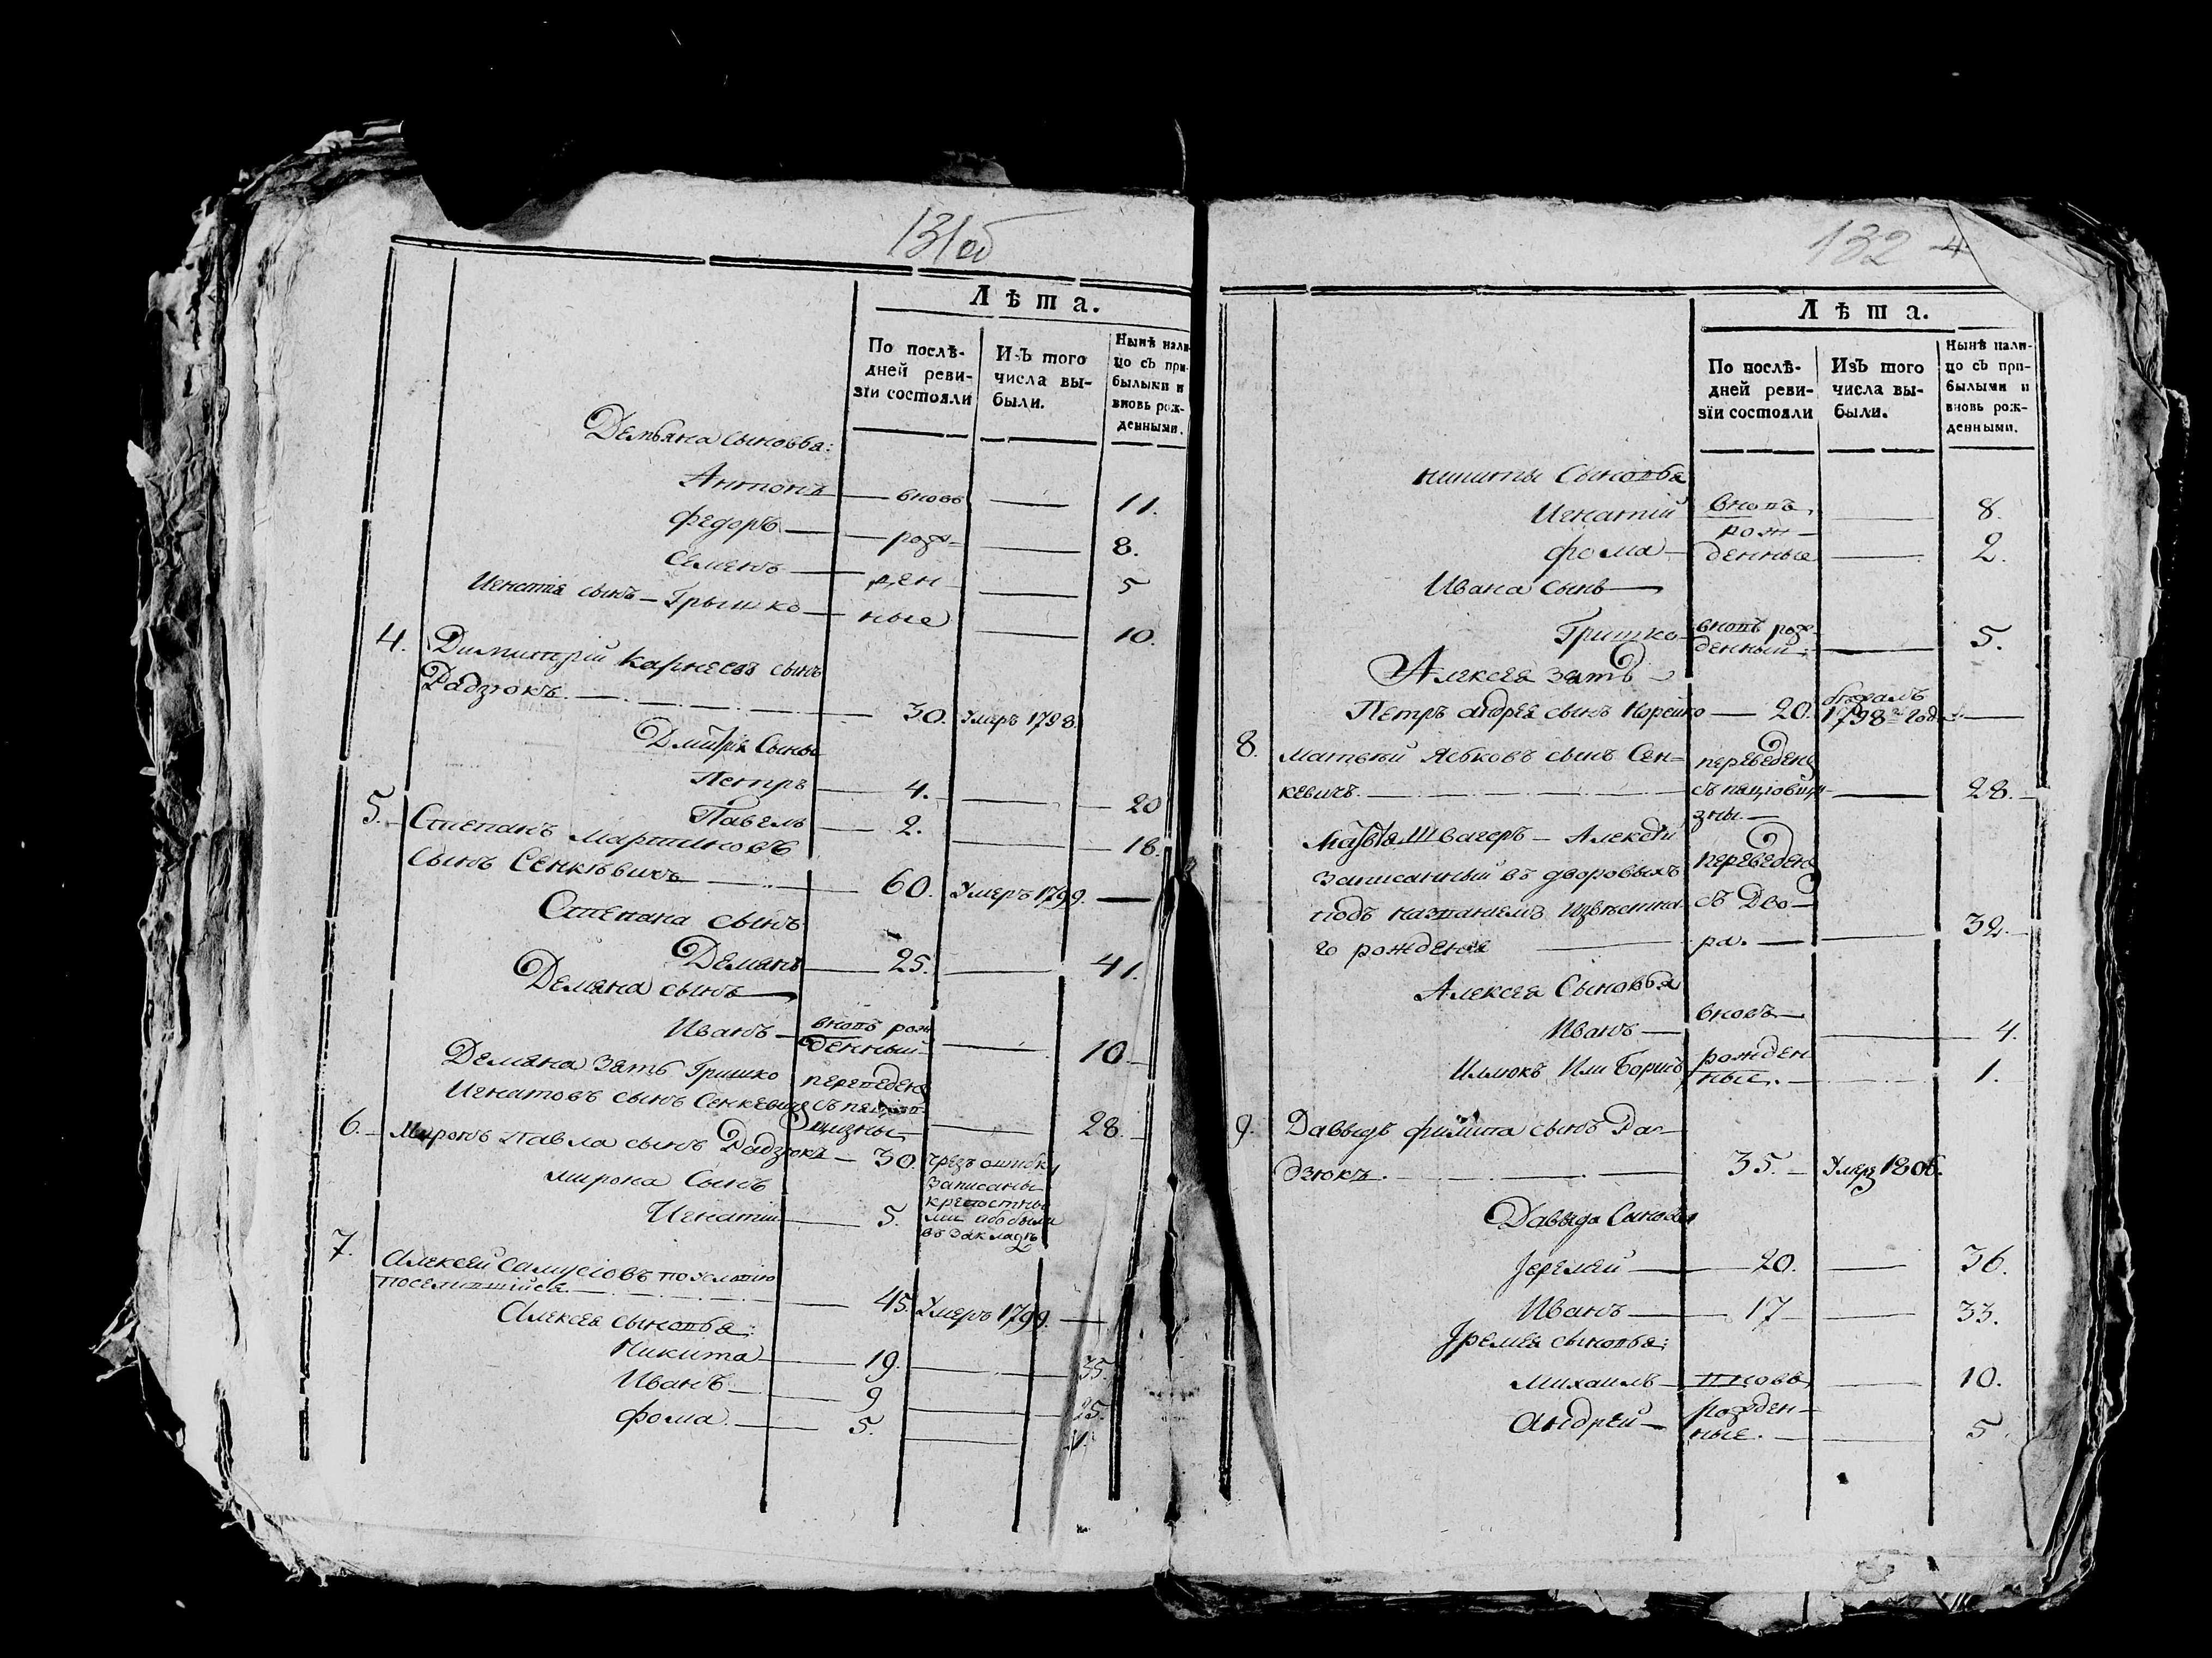 131об
Лѣта.
По послѣ-
дней реви-
зіи состояли
Изъ того
числа вы-
были.
Нынѣ нали-
цо съ при-
былыми и
вновь рож-
денными.
Демьяна сыновья:
Антонъ — вновь — 11.
Федоръ — рож- — 8.
Семенъ — ден — 5
Игнатія сынъ — Грышко — ные — 10.
4. Димитрій Карнеевъ сынъ
Радзюкъ. — 30. Умеръ 1798.
Дмитрія Сыны
Петръ — 4. — 20
Павелъ — 2. — 18.
5. Степанъ Мартиновъ
сынъ Сенкѣвичъ — 60. Умеръ 1799. —
Степана сынъ
Демянъ — 25. — 41.
Демяна сынъ —
Иванъ — вновь рож
денный — 10.
Демяна зять Гришко переведенъ
Игнатовъ сынъ Сенкевичъ
щизны — 28.
6. Миронъ Павла сынъ Радзюкъ — 30. чрезъ ошибку
записаны
Мирона Сынъ
крепостны
Игнатій — 5. ми ибо были
въ закладѣ
7. Алексей Самусіовъ
поселившійся — 45. Умеръ 1799. —
Алексея сыновья:
Никита — 19. — 35.
Иванъ — 9 — 25.
Фома — 5.
132 4
Лѣта.
По послѣ-
дней реви-
зіи состояли
Изъ того
числа вы-
были.
Нынѣ нали-
цо съ при-
былыми и
вновь рож-
денными.
Никиты Сыновья
Игнатій вновь — 8.
рож-
Фома — денные — 2.
Ивана сынъ —
Гришко — вновь рож-
денный — 5.
Алексея зять —
Петръ Андрея сынъ Корейко — 20. 1798 год —
8. Матвей Яськовъ сынъ Сен- переведенъ
кевичъ. — 28.
зны —
Матвѣя Швагеръ — Алексѣй
записанный въ дворовыхъ переведенъ
подъ названіемъ съ Дво-
го рожденія — ра. — 32.
Алексея Сыновья
вновь —
Иванъ — 4.
Илюкъ или Борисъ рожден
ные. — 1.
9. Давыдъ Филипа сынъ Ра-
дзюкъ. — 35. — Умеръ 1806.
Давыда Сыновья
Јеремей — 20. — 36.
Иванъ — 17 — 33.
Јремея сыновья:
Михаилъ — вновь — 10.
Андрей — рожден-
ные. — 5.